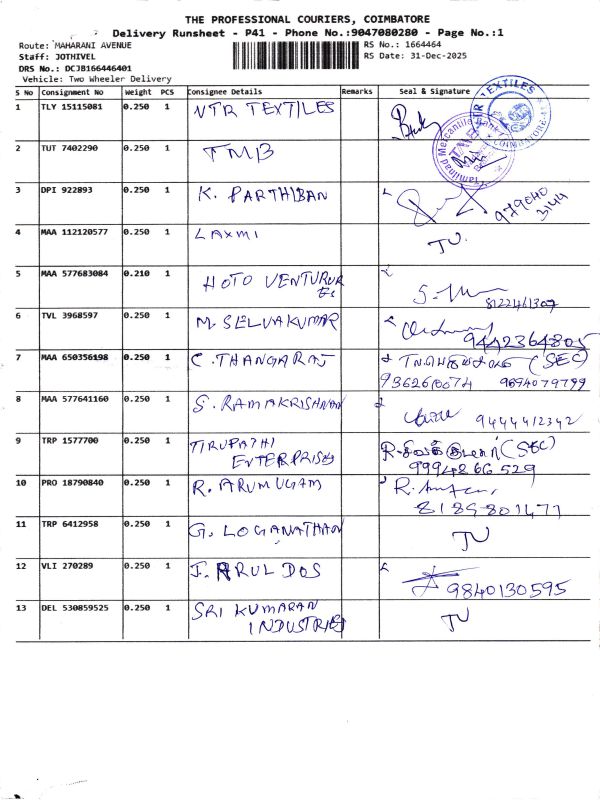 THE PROFESSIONAL COURIERS, COIMBATORE
Delivery Runsheet - P41 - Phone No.:9047080280 - Page No.:1
Route: MAHARANI AVENUE RS No.: 1664464
Staff: JOTHIVEL RS Date: 31-Dec-2025
DRS No.: DCJB166446401
Vehicle: Two Wheeler Delivery
S No Consignment No Weight PCS Consignee Details Remarks Seal & Signature
1 TLY 15115081 0.250 1 NTR TEXTILES
2 TUT 7402290 0.250 1 TMB
3 DPI 922893 0.250 1 K. PARTHIBAN 979040
3144
4 MAA 112120577 0.250 1 LAXMI TU.
5 MAA 577683084 0.210 1 HOTO VENTURUR
Es 8122461307
6 TVL 3968597 0.250 1 M. SELVAKUMAR 9442364805
7 MAA 650356198 0.250 1 C. THANGARAJ (SEC)
9362610074 9694079799
8 MAA 577641160 0.250 1 S. RAMAKRISHNAN 9444412342
9 TRP 1577700 0.250 1 TIRUPATHI (SEC)
ENTERPRISES 9994266529
10 PRO 18790840 0.250 1 R. ARUMUGAM
8189801477
11 TRP 6412958 0.250 1 G. LOGANATHAN TU
12 VLI 270289 0.250 1 J. ARUL DOS 9840130595
13 DEL 530859525 0.250 1 SRI KUMARAN TU
INDUSTRIES